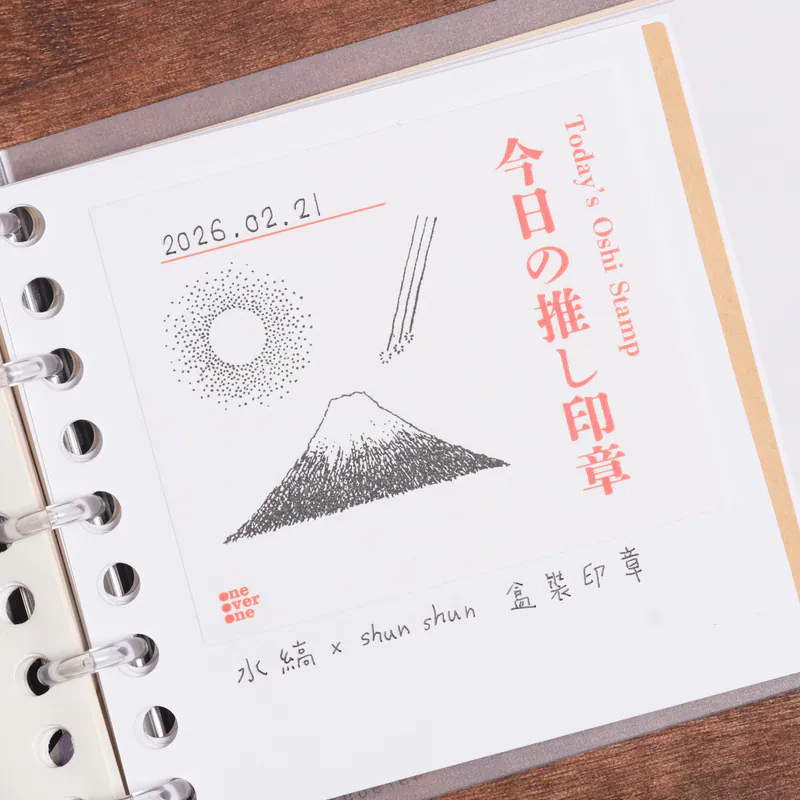 2026.02.21
Today's Oshi Stamp
今日の推し印章
one
over
one
水縞 x shun shun 盒裝印章